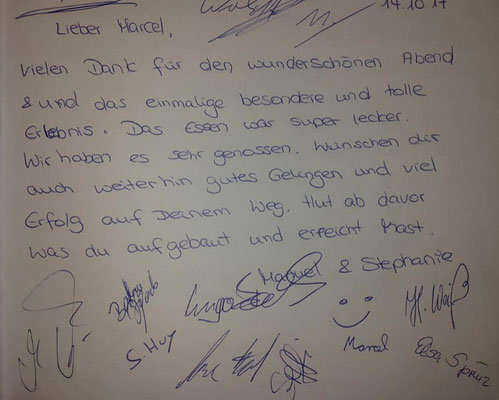 14.10.17
Lieber Marcel,
Vielen Dank für den wunderschönen Abend
& und das einmalige besondere und tolle
Erlebnis. Das Essen war super lecker.
Wir haben es sehr genossen. Wünschen dir
auch weiterhin gutes Gelingen und viel
Erfolg auf Deinem Weg. Hut ab davor
was du aufgebaut und erreicht hast.
Manuel & Stephanie
S. Huy
Marcel